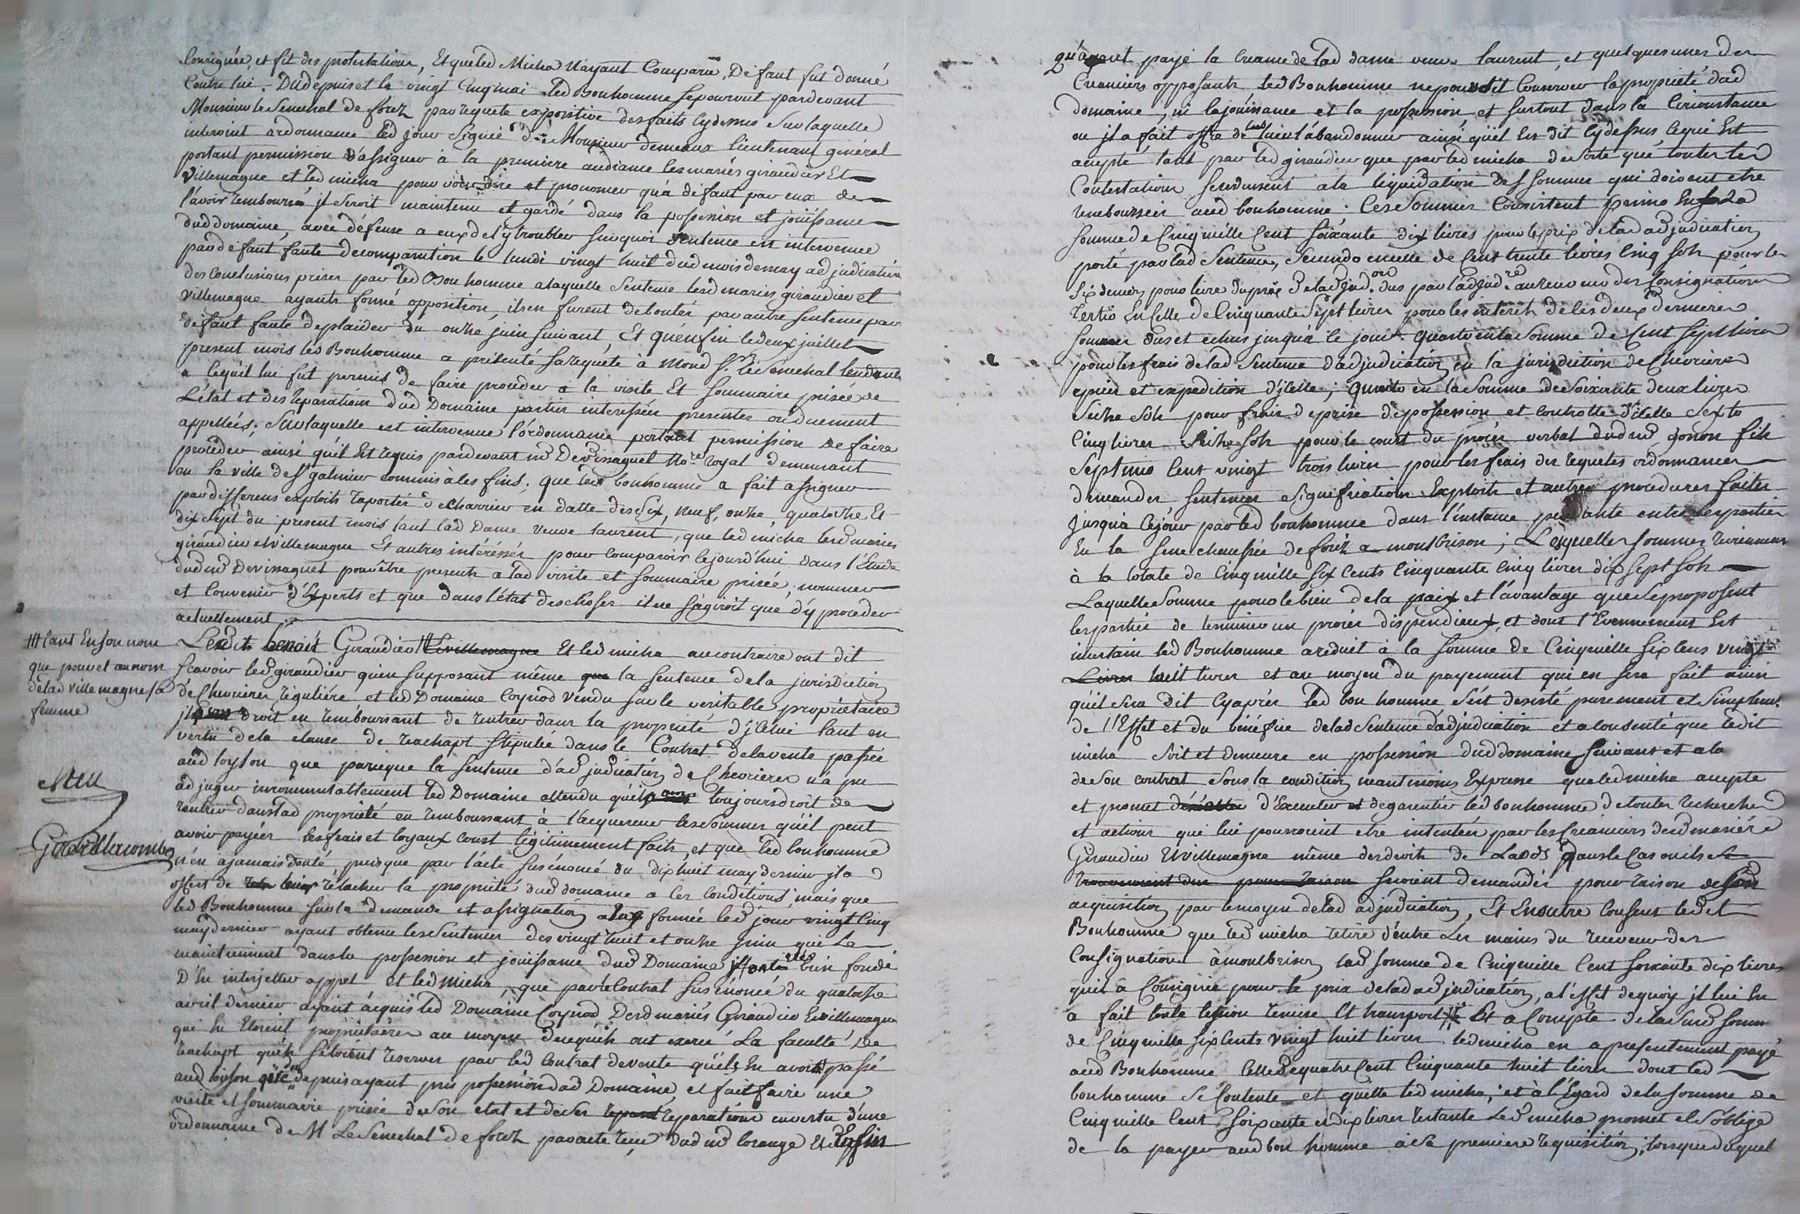 Consignée, et fit des protestations, Et que led Micha n'ayant Comparu, Defaut fut donné
Contre lui. Dudepuis et le vingt Cinq mai led Bonhomme se pourvut pardevant
Monsieur le Senechal de forez par requete expositive des faits cydessus Sur laquelle
intervint ordonnance led jour Signée de Monsieur demeaux lieutenant général
portant permission d'assigner à la premiere audiance les mariés giraudier Et
Villemagne et led micha pour voir dire et prononcer qu'a defaut par eux de
l'avoir remboursé jl seroit maintenu et gardé dans la possession et jouissance
dud domaine, avec défense a eux de l'y troubler Surquoi Sentence en intervenue
par defaut faute de comparution le lundi vingt huit dud mois de may adjudicative
des Conclusions prises par led Bonhomme a laquelle Sentence lesd mariés giraudier et
Villemagne ayants formé opposition, ils en furent deboutés par autre Sentence par
defaut faute de plaider du onze juin Suivant, Et qu'enfin le deux juillet
present mois led Bonhomme a présenté Sa requete à Mond Sr. le Senechal tendante
a lequ'il lui fut permis de faire proceder a la visite Et Sommaire prisée de
L'état et des reparations dud Domaine parties interessées presentes ou duement
appellées; Sur laquelle est intervenue l'ordonnance portant permission de faire
proceder ainsi qu'il Est requis pardevant me Devissaguet Nore. royal demeurant
en la ville de St galmier commis à les fins; que led bonhomme a fait assigner
par differens exploits raportés de Charvier en datte des Six, neuf, onze, quatorze Et
dix Sept du present mois tant lad Dame veuve laurent, que led micha lesd mariés
giraudier et villemagne Et autres intéréssés pour comparoir cejourd'hui dans l'Etude
dud me Devissaguet pour être presents a lad visite et Sommaire prisée; nommer
et Convenir d'Experts et que dans l'état des choses il ne s'agiroit que d'y proceder
actuellement
Led Sr benoit Giraudier Et villemagne Et led micha au contraire ont dit
Scavoir led giraudier qu'en supposant même que la Sentence de la jurisdiction
de Chevrieres reguliére et led Domaine Coynod vendu Sur le veritable propriétaire
jl droit en remboursant de rentrer dans la propriété d'jcelui tant en
vertu de la clause de rachapt Stipulée dans le Contrat de la vente passée
aud loyson que parceque la Sentence d'adjudication de Chevrieres n'a pu
adjuger incommutablement led Domaine attendu qu'il toujours droit de
rentrer dans lad propriété en remboursant à l'acquereur les Sommes qu'il peut
avoir payées les frais et loyaux cousts légitimement faits et que led bonhomme
n'en a jamais douté puisque par l'acte Susénoncé du dix huit may dernier jl a
offert de relacher la propriété dud domaine a ces conditions, mais que
led Bonhomme Sur la demande et assignation a lui formée led jour vingt Cinq
may dernier ayant obtenu les Sentences des vingt huit et onze juin qui le
maintiennent dans la possession et jouissance dud Domaine, bien fondé
D'en interjetter appel et led Micha, que par le Contrat Susénoncé du quatorze
avril dernier ayant acquis led Domaine Coynod Desd mariés Giraudier Et villemagne
qui En Etoient propriétaires au moyen de ce qu'ils ont exercé La faculté de
rachapt qu'ils s'étoient reservée par led Contrat de vente qu'ils En avoit passé
aud loison depuis ayant pris possession dud Domaine, et fait faire une
visite et Sommaire prisée de son etat et de ses reparations en vertu d'une
ordonnance de M Le Senechal de forez par acte reçu dud me lorange Et Enfin
# tant En son nom
que pour et au nom
de lad villemagne sa
femme
Giraud lacombe
qu'ayant payé la Creance de lad dame veuve laurent, et quelques unes des
Creanciers opposants led Bonhomme ne pouvoit Conserver la propriété dud
domaine, ni la jouissance et la possession et Surtout dans la Circonstance
ou jl a fait offre de l'abandonner ainsi qu'il Est dit Cydessus ce qui Est
accepté tant par led giraudier que par led micha de Sorte que toutes les
Contestations Se reduisent a la liquidation des Sommes qui doivent etre
remboursées aud bonhomme. Ces Sommes Consistent primo En la
Somme de Cinq mille Cent Soixante dix livres pour le prix de lad adjudication
porté par lad Sentence, Secundo en celle de Cent trente livres Cinq Sols pour les
Six deniers pour livre du prix de lad adjud.on dus par l'adjud.re au receveur des Consignations
Tertio En Celle de Cinquante Sept livres pour les interets de les deux dernieres
Sommes dus et echus jusqu'a ce jour. Quarto en la Somme de Cent Sept livres
pour les frais de lad Sentence d'adjudication en la jurisdiction de Chevrieres
epices et expedition d'jcelle; Quinto en la Somme de Soixante deux livres
Seize Sols pour frais de prise de possession et controlle d'jcelle Sexto
Cinq livres Seize Sols pour le coust du procés verbal dud me gonon fils
Septimo Cent vingt trois livres pour les frais des requetes ordonnances
demandes Sentences Significations Exploits et autres procedures faites
jusqu'à ce jour par led bonhomme dans l'instance pendante entre les parties
En la Senechaussée de forez a montbrison; Lesquelles Sommes reviennent
à la totale de Cinq mille Six Cents Cinquante Cinq livres dix Sept Sols
Laquelle Somme pour le bien de la paix et l'avantage que Se proposent
les parties de terminer un procés dispendieux, et dont l'Evennement Est
incertain led Bonhomme a reduit à la Somme de Cinq mille Six Cens vingt
huit livres et au moyen du payement qui en Sera fait ainsi
qu'il Sera dit Cyaprés led bon homme S'est desisté purement et Simplemt.
de l'Effet et du bénéfice de lad Sentence d'adjudication et a Consenti que ledit
micha Soit et demeure en possession dud domaine Suivant et a la
de son contrat, Sous la condition neantmoins Expresse que led micha accepte
et promet d'Executer et de garentir led bonhomme de toutes recherches
et actions qui lui pourroient etre intentées par les Créanciers desd mariés
Giraudier Et villemagne même des droits de Laods dans le Cas ou ils
seroient demandés pour raison de Son
acquisition par le moyen de lad adjudication, Et En outre Consent ledit
Bonhomme que led micha retire d'entre Les mains du receveur des
Consignations a montbrison lad Somme de Cinq mille Cent Soixante dix livres
qu'il a Consignée pour le prix de lad adjudication, a l'effet de quoi jl lui En
a fait toute Cession remise Et transport Et a Compte de lad Somme
de Cinq mille Six Cents Vingt huit livres led micha en a presentement payé
aud Bonhomme Celle de quatre Cent Cinquante huit livres dont led
bonhomme Se Contente et quitte led micha; et à l'Egard de la Somme de
Cinq mille Cent Soixante et dix livres restante Led micha promet et S'oblige
de la payer aud bon homme à Sa premiere requisition; lors que duquel